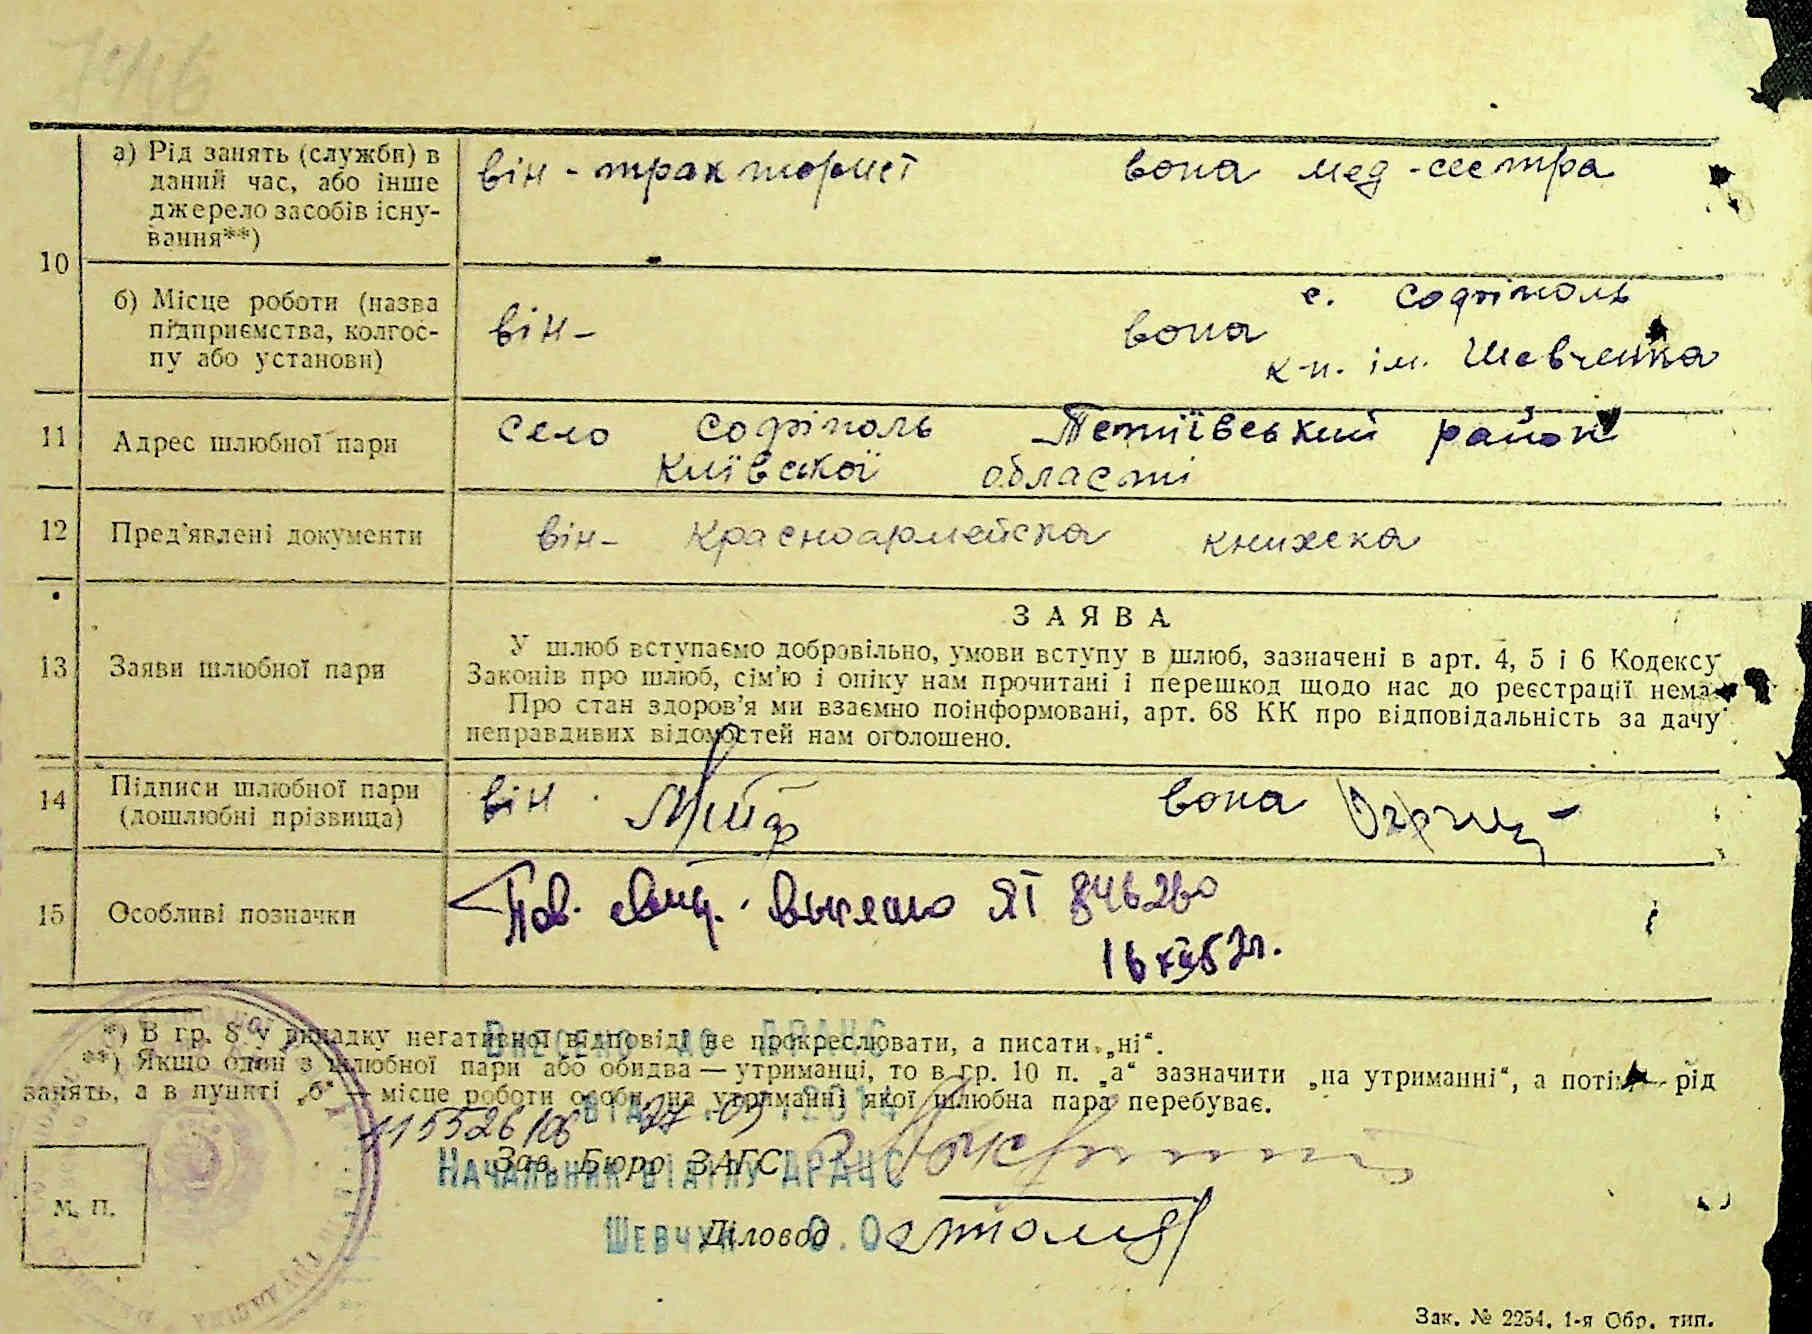 10
а) Рід занять (служби) в
даний час, або інше
джерело засобів існу-
вання**)
він - тракторист вона мед-сестра
б) Місце роботи (назва
підприємства, колгос-
пу або установи)
він - вона с. Софіполь
к-п. ім. Шевченка
11 Адрес шлюбної пари
село Софіполь Тетіївський район
Київської області
12 Пред'явлені документи
він - Красноармейска книжска
13 Заяви шлюбної пари
ЗАЯВА
У шлюб вступаємо добровільно, умови вступу в шлюб, зазначені в арт. 4, 5 і 6 Кодексу
Законів про шлюб, сім'ю і опіку нам прочитані і перешкод щодо нас до реєстрації нема
Про стан здоров'я ми взаємно поінформовані, арт. 68 КК про відповідальність за дачу
неправдивих відомостей нам оголошено.
14 Підписи шлюбної пари
(дошлюбні прізвища)
він вона
15 Особливі позначки
Пов. ЯТ 846260
16 XII 52г.
*) В гр. 8 у випадку негативної відповіді не прокреслювати, а писати „ні“.
**) Якщо один з шлюбної пари або обидва — утриманці, то в гр. 10 п. „а“ зазначити „на утриманні“, а потім рід
занять, а в пункті „б“ — місце роботи особи, на утриманні якої шлюбна пара перебуває.
Внесено до ДРАЦС
2014
Зав. Бюро ЗАГС
Начальник відділу ДРАЦС
М. П.
Шевчук О.О
Діловод
Зак. № 2254. 1-я Обр. тип.